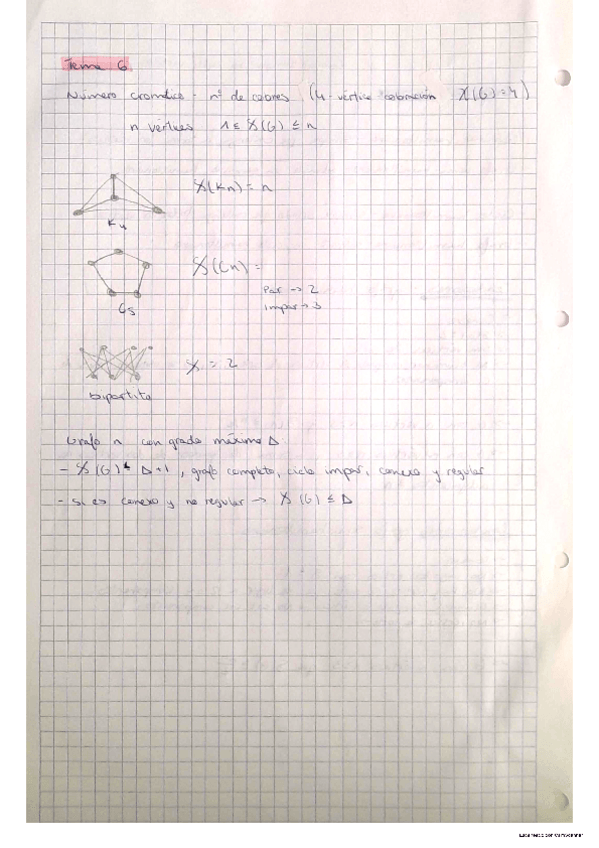 Tema 6
Número cromático - nº de colores (4-vértice coloración X(G)=4)
n vértices 1 ≤ X(G) ≤ n
X(Kn) = n
K4
X(Cn) =
Par → 2
Impar → 3
C5
X = 2
bipartito
Grafo n con grado máximo Δ:
- X(G) ≤ Δ+1, grafo completo, ciclo impar, conexo y regular
- Si es conexo y no regular → X(G) ≤ Δ